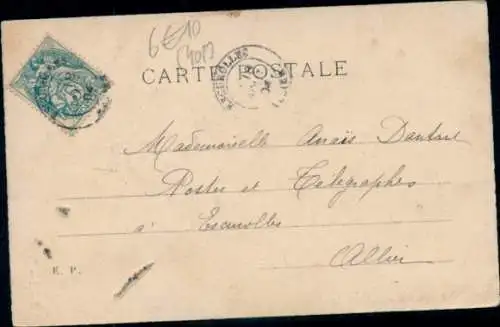 6€10
CARTE POSTALE
ESCUROLLES
Mademoiselle Anaïs Dantant
Postes et Télégraphes
à Escurolles
Allier
E. P.